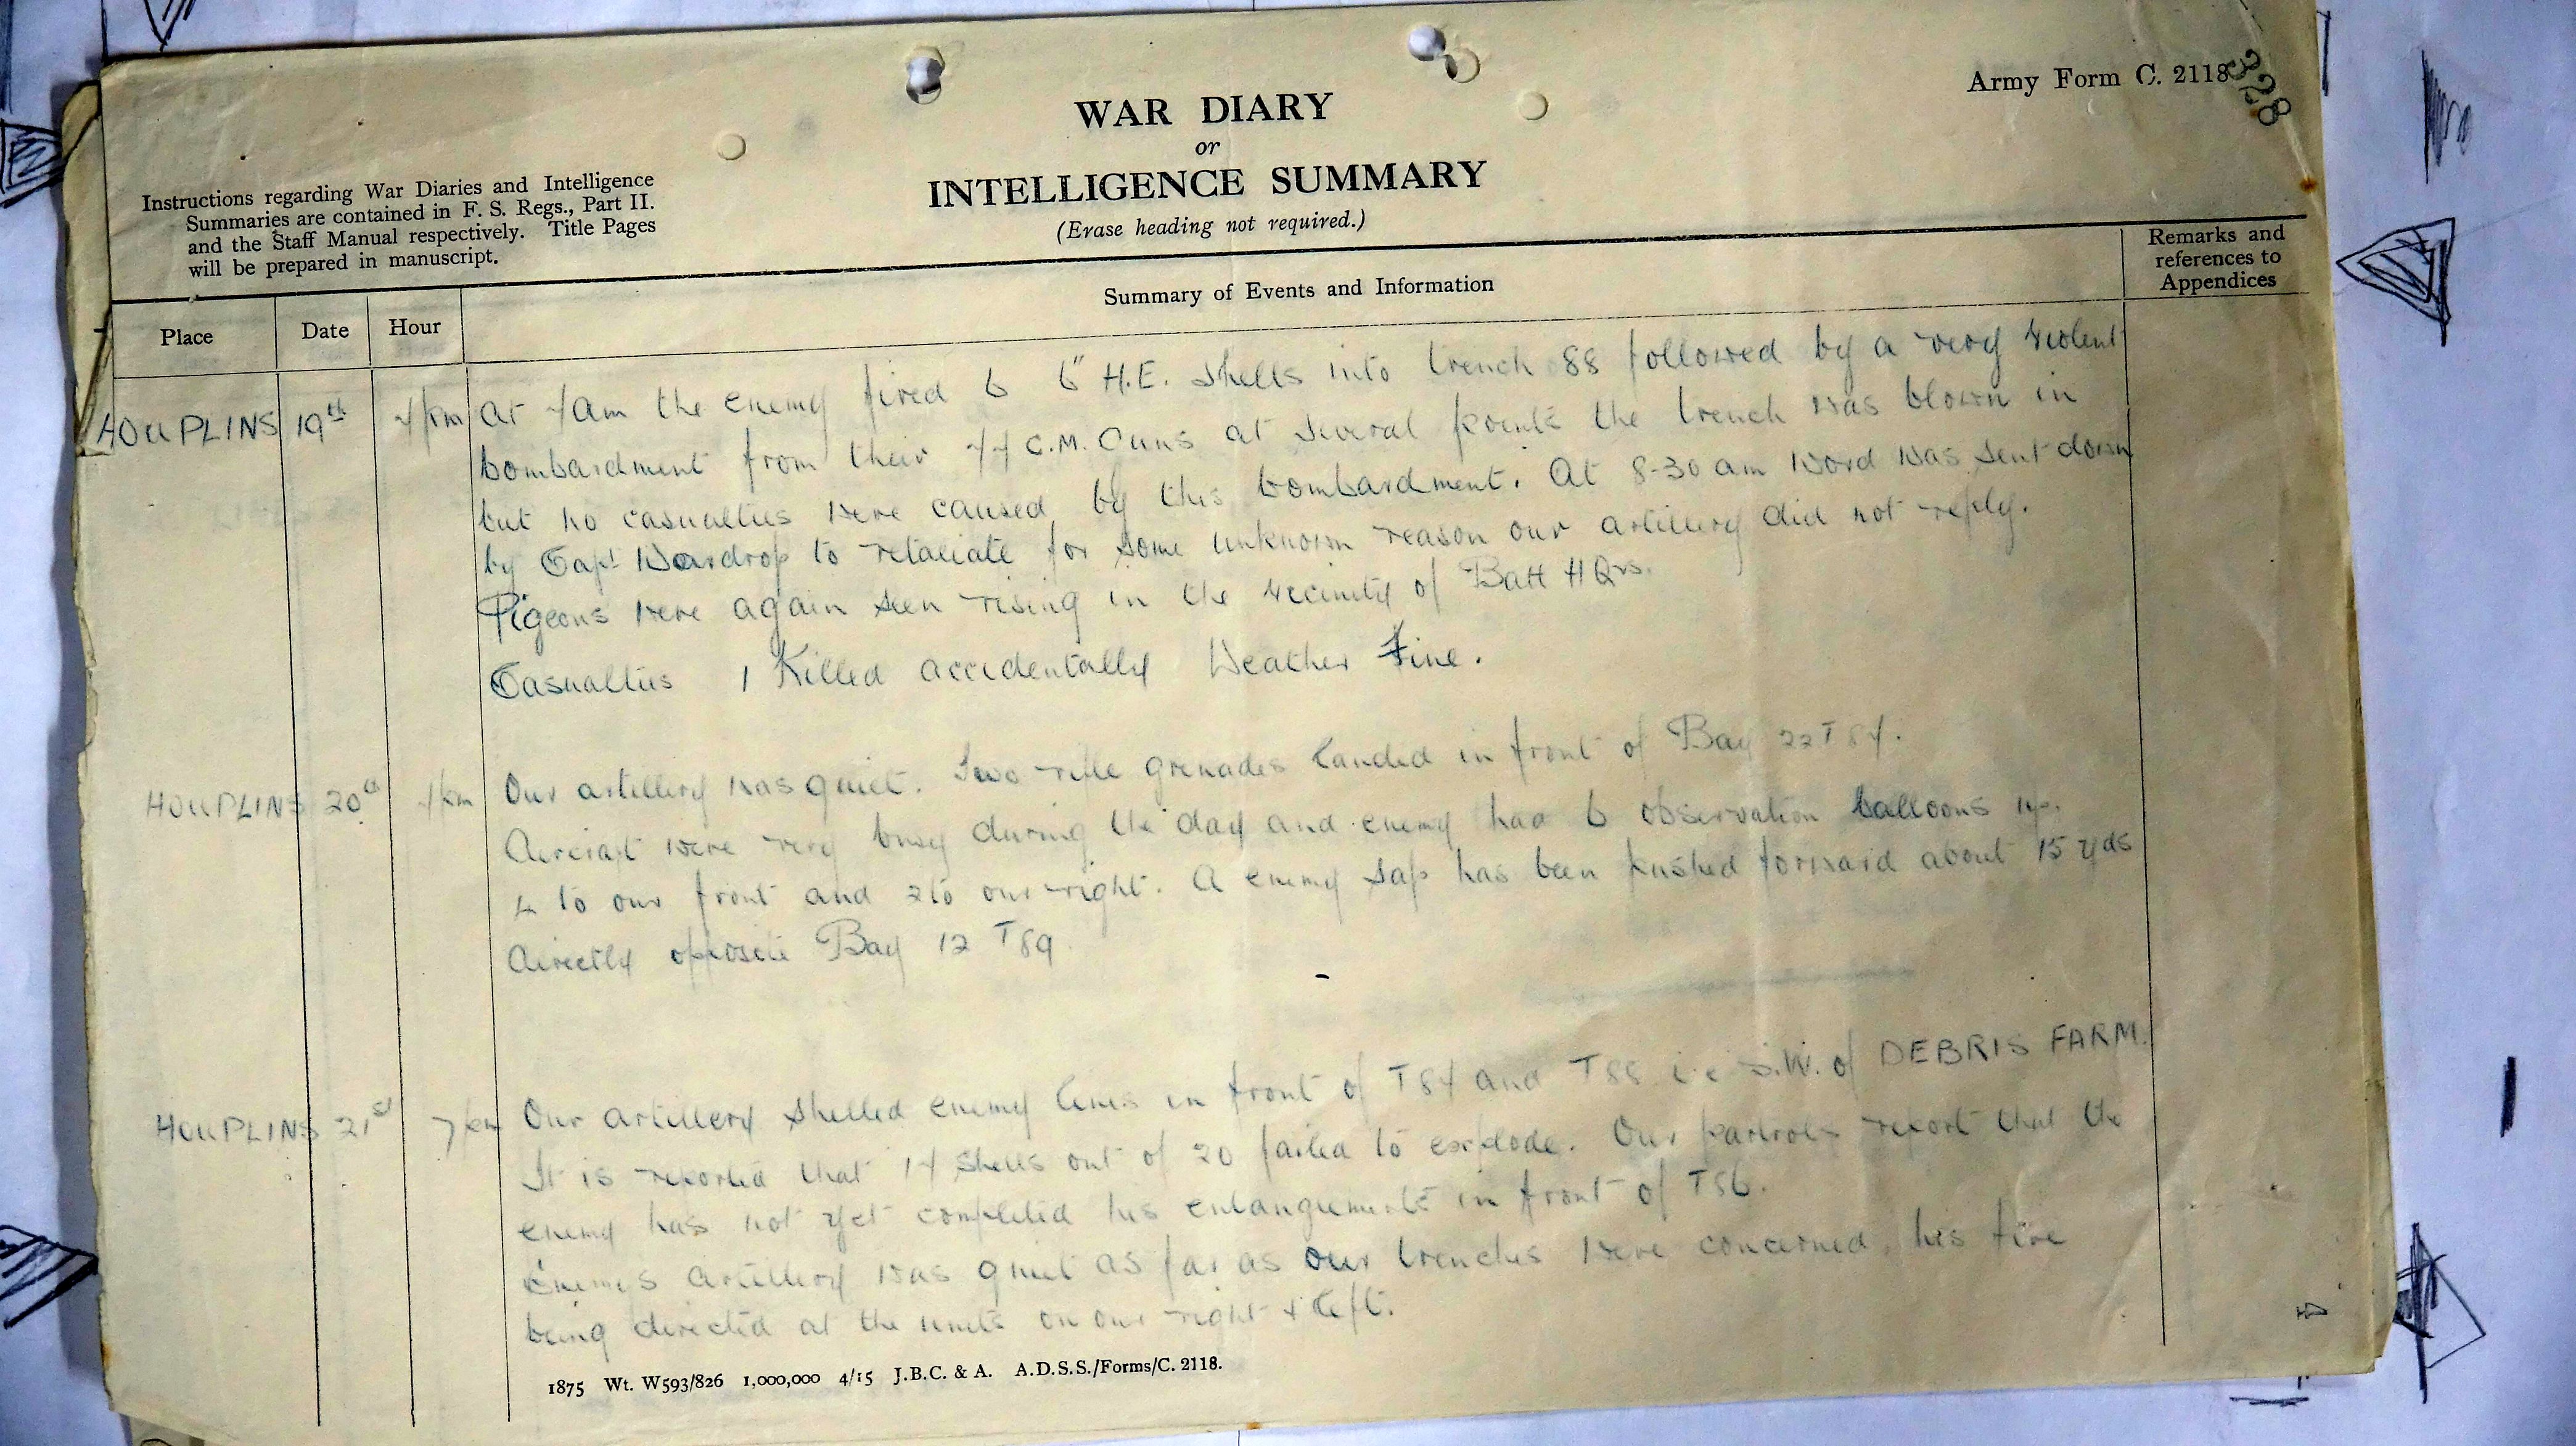 Army Form C. 2118
328
WAR DIARY
or
INTELLIGENCE SUMMARY
(Erase heading not required.)
Instructions regarding War Diaries and Intelligence
Summaries are contained in F. S. Regs., Part II.
and the Staff Manual respectively. Title Pages
will be prepared in manuscript.
Place Date Hour Summary of Events and Information Remarks and references to Appendices
HOUPLINS 19th 7pm At 7am the enemy fired 6 6" H.E. shells into trench 88 followed by a very violent
bombardment from their 77 C.M. Guns at several points the trench was blown in
but no casualties were caused by this bombardment. At 8-30 am word was sent down
by Capt Wardrop to retaliate for some unknown reason our artillery did not reply.
Pigeons were again seen rising in the vicinity of Batt HQrs.
Casualties 1 Killed accidentally Weather Fine.
HOUPLINS 20th 7pm Our artillery was quiet. Two rifle grenades landed in front of Bay 22 T87.
Aircraft were very busy during the day and enemy had 6 observation balloons up.
4 to our front and 2 to our right. A enemy sap has been pushed forward about 15 yds
directly opposite Bay 12 T89
HOUPLINS 21st 7pm Our artillery shelled enemy lines in front of T87 and T88 i.e S.W. of DEBRIS FARM.
It is reported that 17 shells out of 20 failed to explode. Our patrols report that the
enemy has not yet completed his entanglements in front of T86.
Enemies artillery was quiet as far as our trenches were concerned, his fire
being directed at the units on our right & left.
1875 Wt. W593/826 1,000,000 4/15 J.B.C. & A. A.D.S.S./Forms/C. 2118.